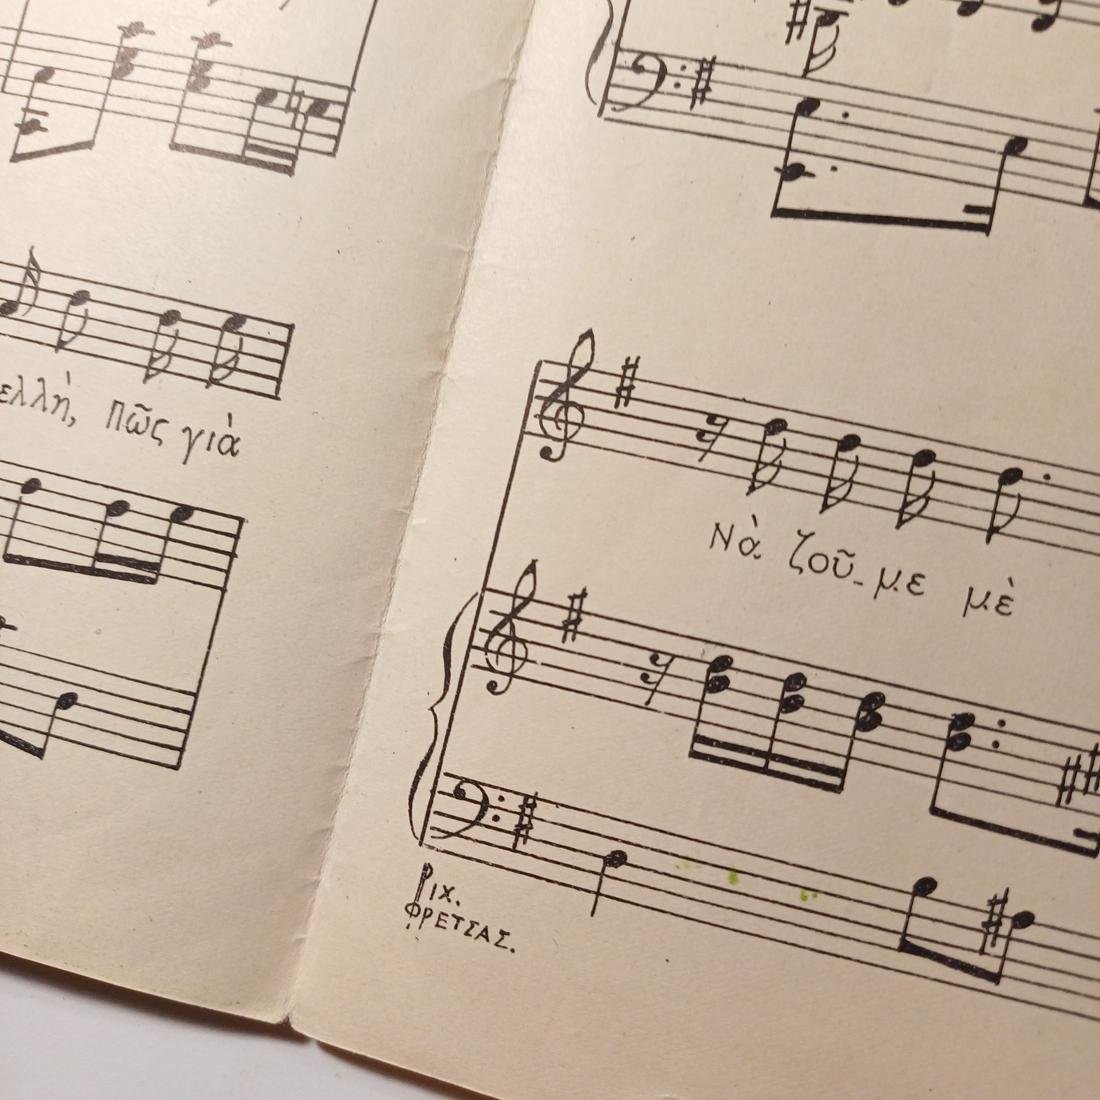 ελλὴ, πῶς γιὰ
Νὰ ζοῦ-με μὲ
Ριχ.
ΦΡΕΤΣΑΣ.